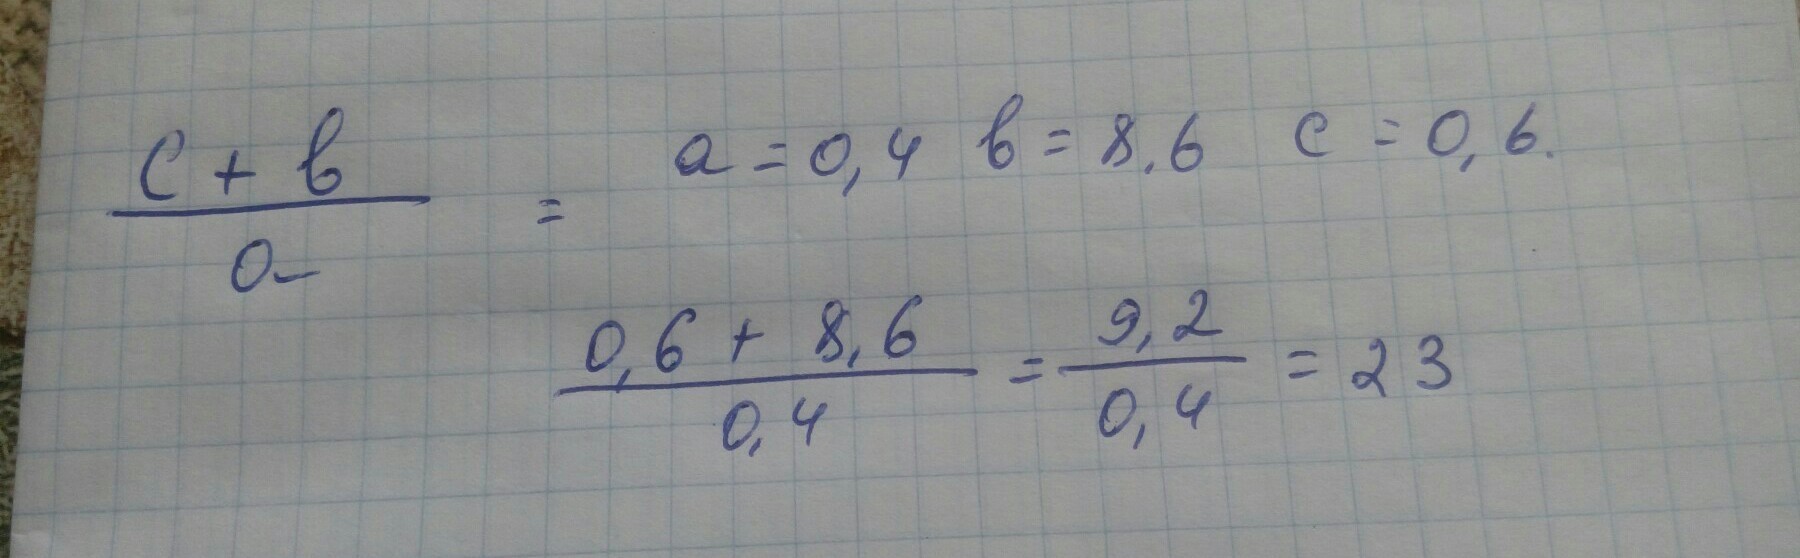 (c + b) / a = a = 0,4 b = 8,6 c = 0,6.
(0,6 + 8,6) / 0,4 = 9,2 / 0,4 = 23